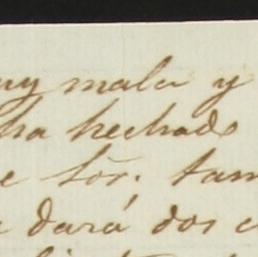 uy mala y
ha hechado
e Sõr; tam
a dará dos c